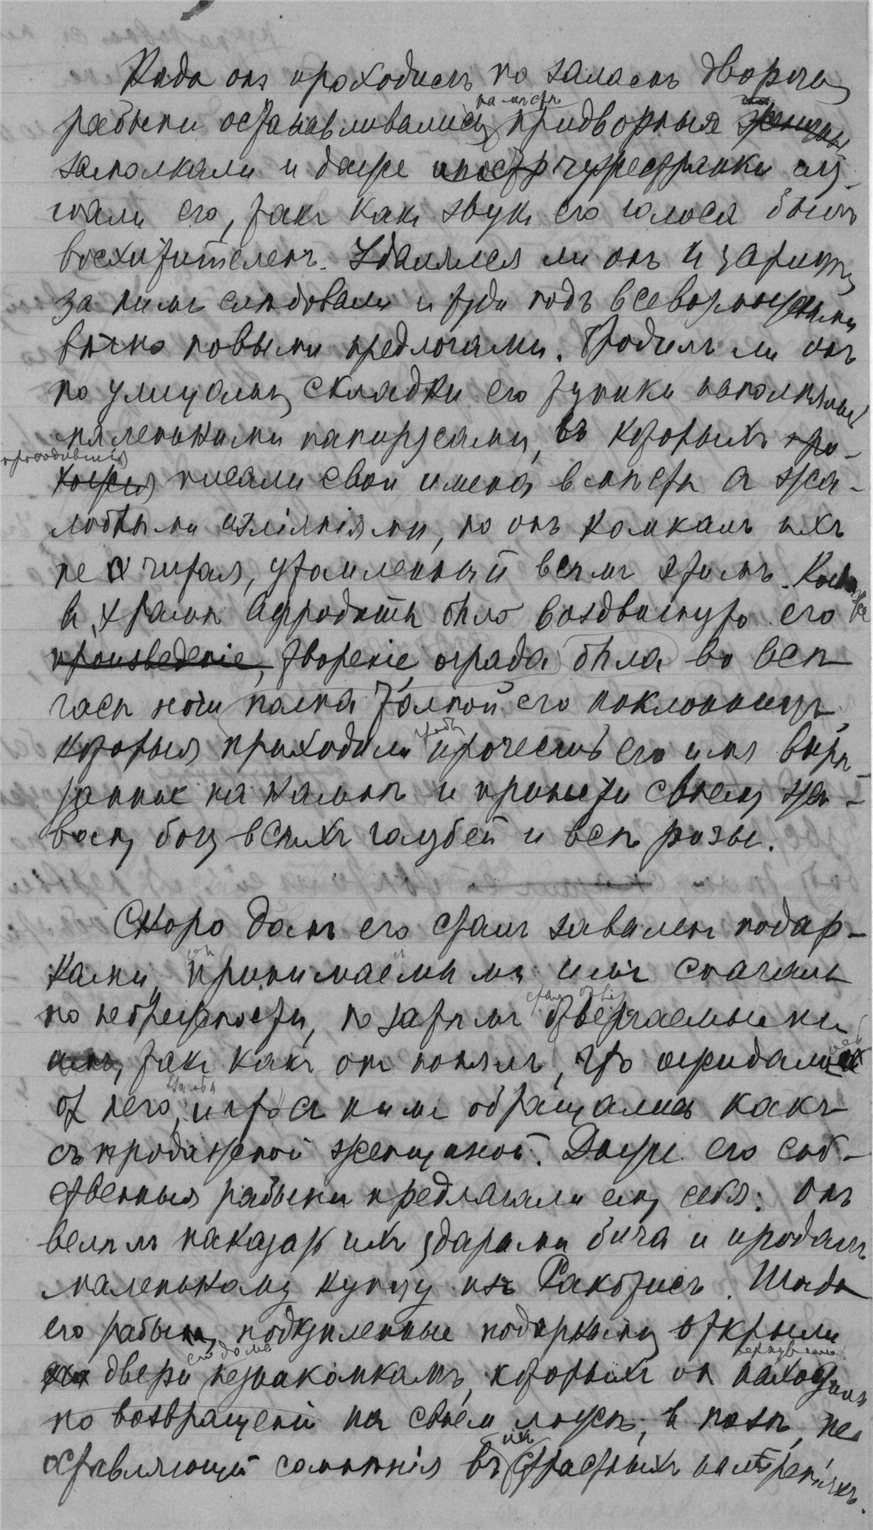 Когда онъ проходилъ по заламъ дворца,
рабыни останавливались, придворныя женщины
замолкали и даже чужестранки слу-
шали его, такъ какъ звукъ его голоса былъ
восхитителенъ. Удалялся ли онъ къ царицѣ,
за нимъ слѣдовали и туда подъ всевозможными
вѣчно новыми предлогами. Бродилъ ли онъ
по улицамъ, складки его туники наполнялись
маленькими папирусами, въ которыхъ про-
хожія писали свои имена вмѣстѣ съ жа-
лобными изліяніями, но онъ комкалъ ихъ
не читая, утомленный всѣмъ этимъ. Когда
въ храмѣ Афродиты было воздвигнуто его
произведеніе, твореніе, ограда была во всѣ
часы ночи полна толпой его поклонницъ,
которыя приходили чтобъ прочесть его имя вырѣ-
занное на камнѣ и принести своему жи-
вому богу всѣхъ голубей и всѣ розы.
Скоро домъ его сталъ заваленъ подар-
ками, принимаемыми имъ сначала
по небрежности, но затѣмъ отвергаемыми
имъ, такъ какъ онъ понялъ, что ожидали
отъ него, и что съ нимъ обращались какъ
съ продажной женщиной. Даже его соб-
ственныя рабыни предлагали ему себя: онъ
велѣлъ наказать ихъ ударами бича и продалъ
маленькому купцу изъ Ракотисъ. Тогда
его рабы, подкупленные подарками, открыли
двери его дома незнакомкамъ, которыхъ он находилъ
по возвращеніи на своемъ ложѣ, въ позѣ, не
оставляющей сомнѣнія въ ихъ страстныхъ намѣреніяхъ.